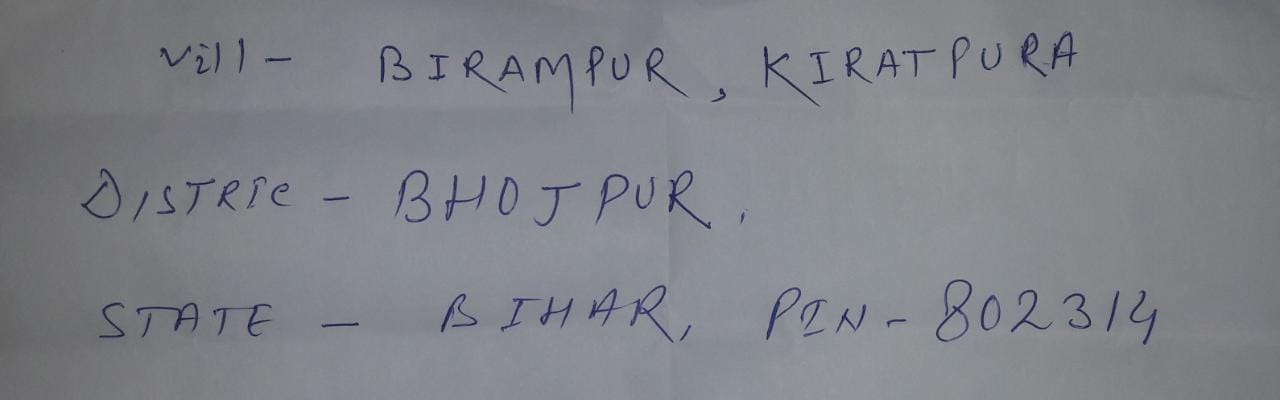 Vill - BIRAMPUR, KIRATPURA
DISTRIC - BHOJPUR,
STATE - BIHAR, PIN - 802314